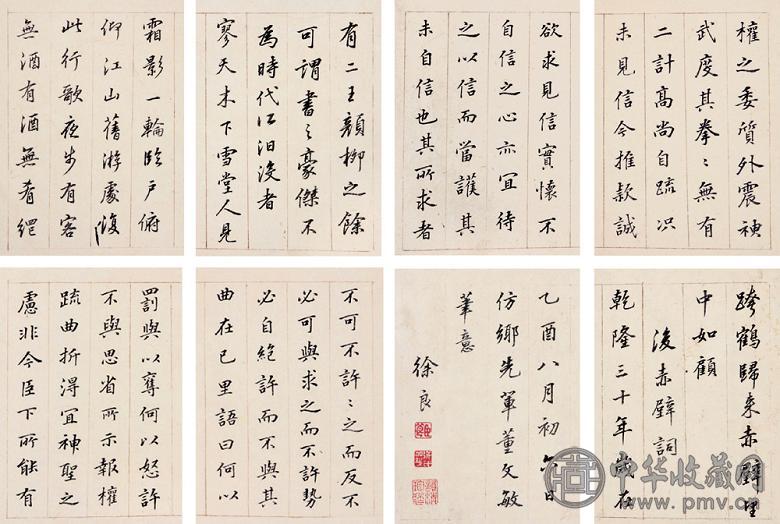 權之委質外震神
武度其拳〻無有
二計高尚自疏况
未見信今推款誠
欲求見信實懷不
自信之心亦宜待
之以信而當護其
未自信也其所求者
有二王顏柳之餘
可謂書之豪傑不
為時代汨沒者
寥天木下雪堂人見
霜影一輪臨戶俯
仰江山舊游處復
此行歌夜步有客
無酒有酒無肴網
跨鶴歸來赤壁
中如顧
後赤壁詞
乾隆三十年歲在
乙酉八月初六日
仿鄉先輩董文敏
筆意
徐良
不可不許〻之而反不
必可與求之而不許勢
必自絕許而不與其
曲在己里語曰何以
罰與以奪何以怒許
不與思省所示報權
疏曲折得宜神聖之
慮非今臣下所能有
中华收藏网
www.pmv.cn